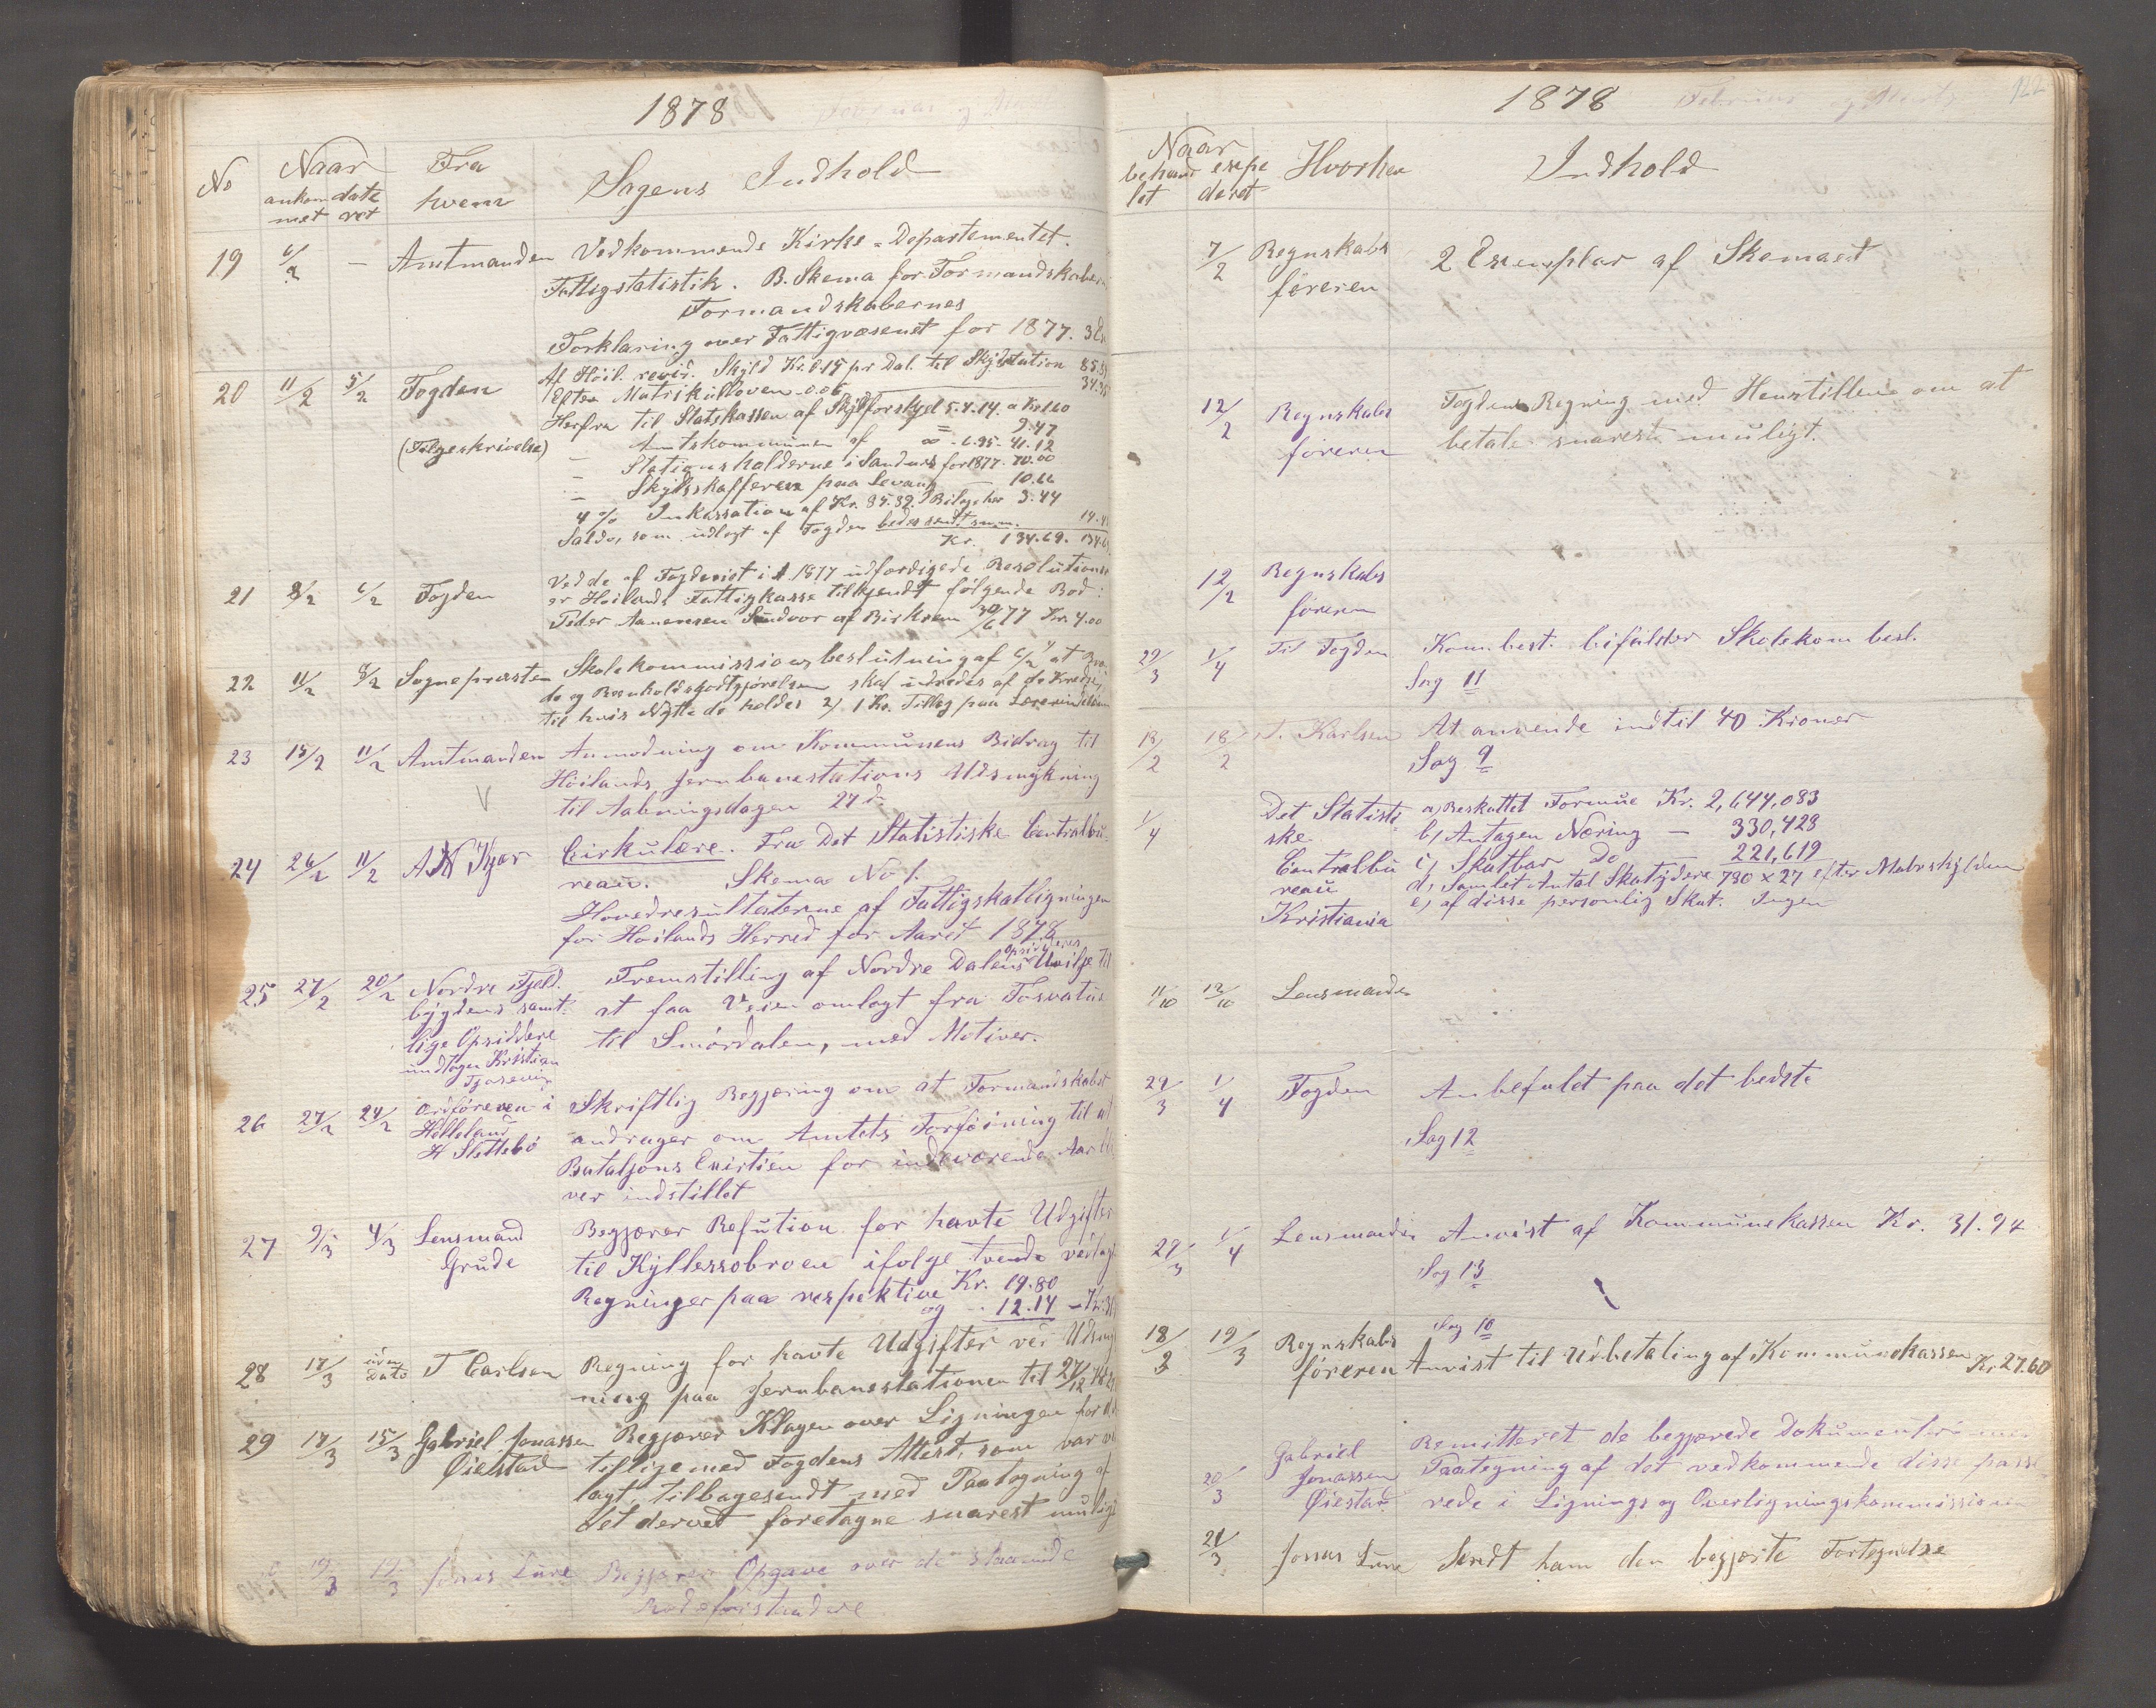 1878
No Naar Fra Sagens Indhold
ankom date hvem
met ret
19 6/2 — Amtmanden Vedkommende Kirke=Departementet.
Fattigstatistik. B. Skema for Formandskaber
Formandskabernes
Forklaring over Fattigvæsenet for 1877.
20 11/2 5/2 Fogden Af Höil. revid. Skyld Kr. 0.15 pr Dal. til Skydsstation
Efter Matrikulloven 0.06
Herfra til Statskassen af Skyldforskjel 5.4.14. a Kr 1.60
9.47
(Følgeskrivelse) — Amtskommunen af — 6.95. 41.12
— Stationsholderne i Sandnæs for 1877. 70.00
— Skydsskafferen paa Levang 10.66
4 % Inkassation af Kr. 85.82. Bilag her 3.44
Saldo, som udlagt af Fogden bedes sendt snm.
Kr. 134.69.
21 8/2 6/2 Fogden Ved de af Fogderiet i A. 1877 udfærdigede Resolutioner
er Høilands Fattigkasse tilkjendt følgende Bod:
Peder Aanensen Sundvor af Birkrem 30/6 77 Kr. 4.00
22 11/2 8/2 Sognepresten Skolekommissions beslutning af 6/2
de og Brænholdsgodtgjørelsen skal udredes af de Kredse,
til hvis Nytte de holdes 2) 1 Kr. Tillæg paa
23 15/2 11/2 Amtmanden Anmodning om Kommunens Bidrag til
Höilands Jernbanestations Udsmykning
til Aabningsdagen 27 d.
24 26/2 11/2 A N Kjær Cirkulære. Fra Det Statistiske Centralbü-
reau. Skema No 1.
Hovedresultaterne af Fattigskatligningen
for Høilands Herred for Aaret 1878
25 27/2 20/2 Nordre Fjeld- Fremstilling af Nordre Dalens Opsidderes Uvilje til
bygdens samt- at faa Veien omlagt fra
lige Opsiddere til Smördalen, med Motiver.
undtagen Kristian
26 27/2 24/2 Ordföreren i Skriftlig Begjæring om at Formandskabet
Helleland andrager om Amtets Forföining til at
H Slettebö Bataljons Exirtien for indeværende Aar bli
ver indstillet
27 9/3 4/3 Lensmand Begjærer Refution for havte Udgifter
Grude til Kyllessobroen ifølge tvende vedlagt
Regninger paa respektive Kr. 19.80
og - 12.14
28 17/3 uden Dato T Carlsen Regning for havte Udgifter ved
ning paa Jernbanestationen til 27/2
29 17/3 15/3 Gabriel Jonassen Begjærer Klagen over Ligningen for
Øiestad tilligemed Fogdens Attest, som var ved
lagt, tilbagesendt med Paategning af
det derved foretagne snarest muligt
19/3 19/3 Jonas Lure Begjærer Opgave over de staaende
Rodeforstandere
1878 122
Naar Hvorhen Indhold
behand expe
let deret
7/2 Regnskabs 2 Exemplar af Skemaet
föreren
12/2 Regnskabs Fogdens Regning med Henstillen om at
föreren betale snarest muligt.
12/2 Regnskabs
föreren
29/3 1/4 Til Fogden Kom best. bifalder Skolekom besl.
Sag 11
18/2 18/2 T. Karlsen At anvende indtil 40 Kroner
Sag 9
1/4 Det Statisti a) Beskattet Formue Kr. 2,644,083
ske b) Antagen Næring — 330,428
Centralbu c) Skatbar do 221,619
reau d) Samlet Antal Skatydere 730 x 27 efter Matrskylden
Kristiania e) af disse personlig Skat. Ingen
11/10 12/10 Lensmanden
29/3 1/4 Fogden Anbefalet paa det bedste
Sag 12
29/3 1/4 Lensmanden Anvist af Kommunekassen Kr. 31.94
Sag 13
Sag 10
18/3 19/3 Regnskabs
föreren Anvist til Udbetaling af Kommunekassen Kr 27.60
Gabriel Remitteret de begjærede Dokumenter
20/3 Jonassen Paategning af det vedkommende disse passe
Øiestad rede i Lignings og Overligningskommissionen
21/3 Jonas Lure Sendt ham den begjærte Fortegnelse